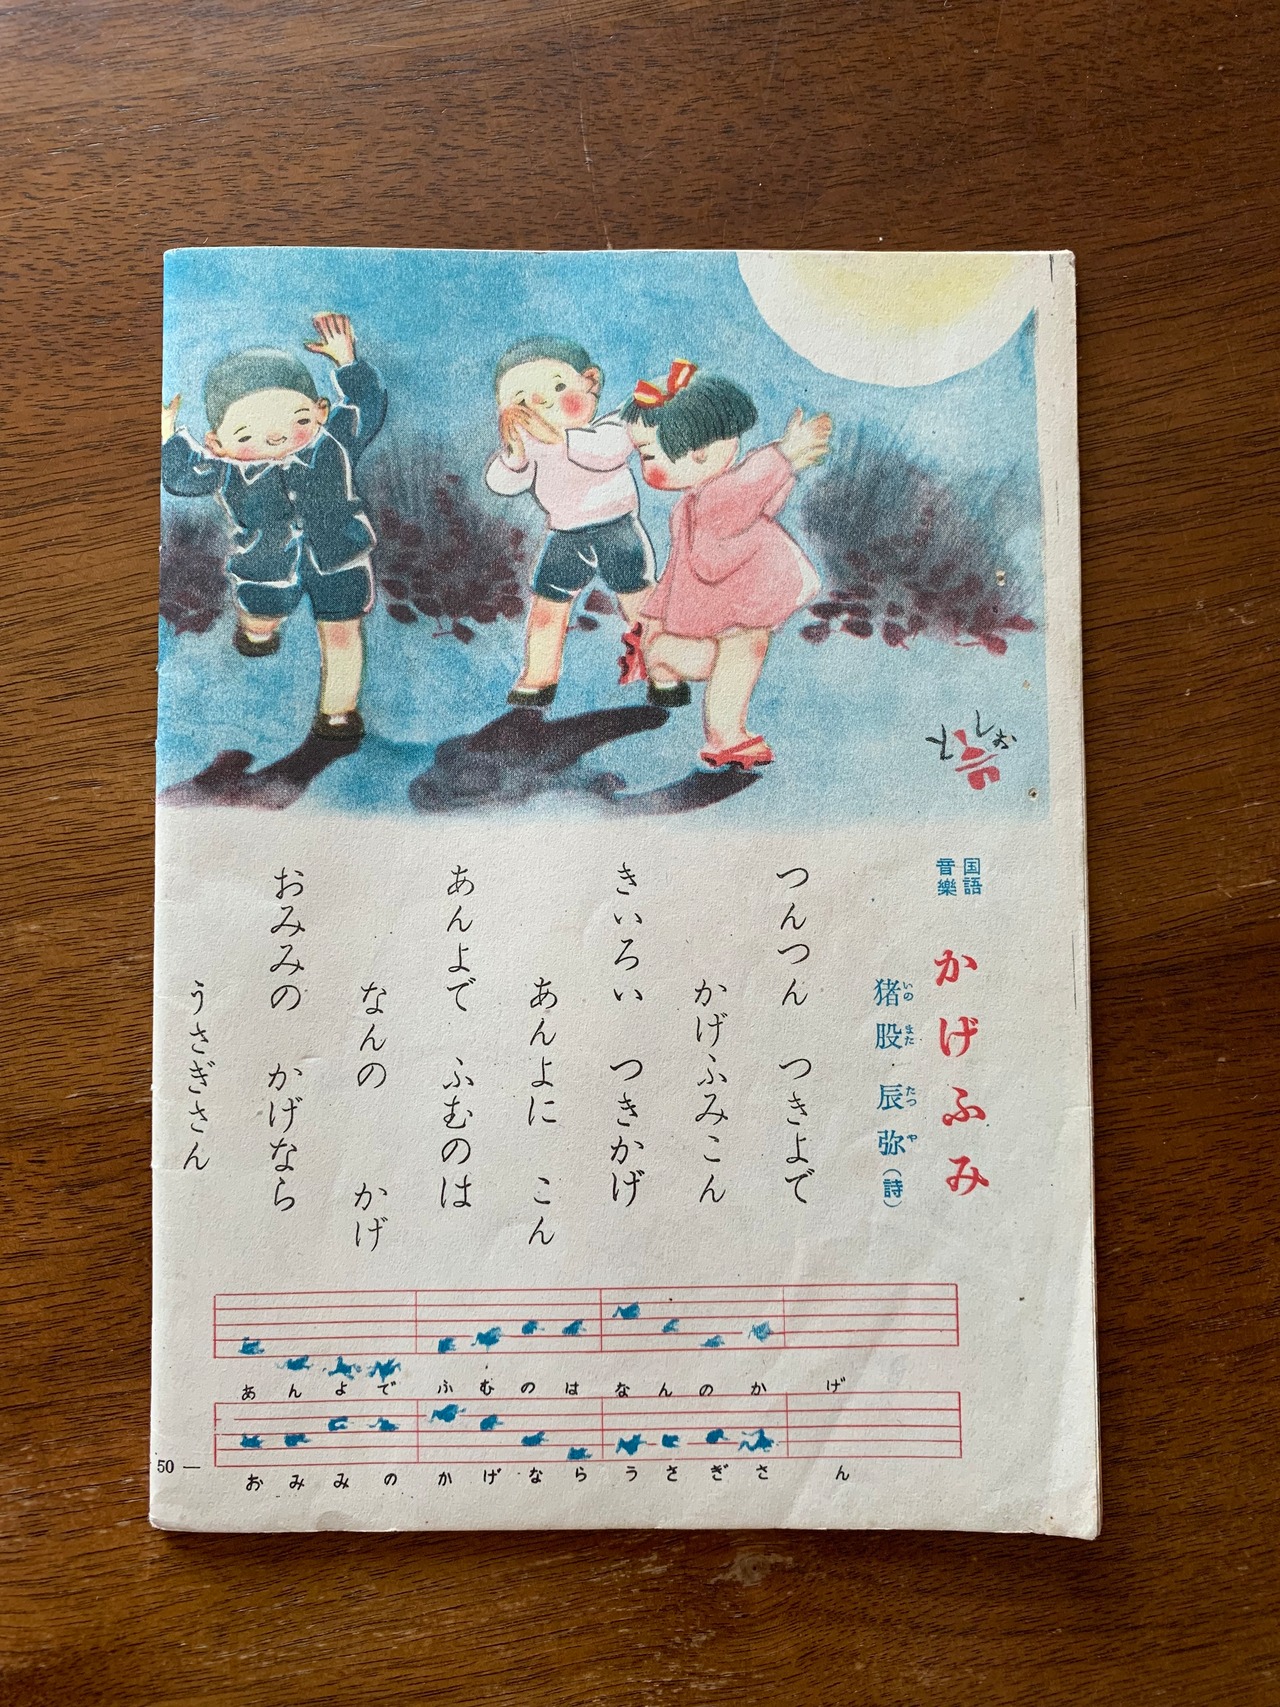 国語
音樂
かげふみ
猪股 辰弥(詩)
いの また たつ や
つんつん つきよで
かげふみこん
きいろい つきかげ
あんよに こん
あんよで ふむのは
なんの かげ
おみみの かげなら
うさぎさん
としお
あんよで ふむのは なんのか げ
おみみの かげなら うさぎさ ん
50 —